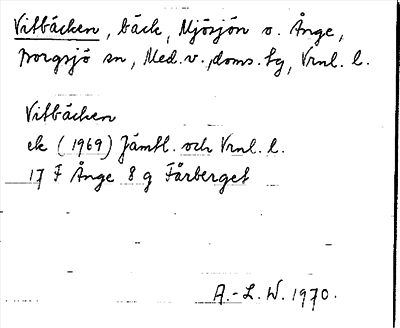 Vitbäcken, bäck, Mjösjön o. Ånge,
Borgsjö sn, Med. v., doms. tg, Vrnl. l.
Vitbäcken
ek (1969) Jämtl. och Vrnl. l.
17 F Ånge 8 g Fårberget
A.-L. W. 1970.